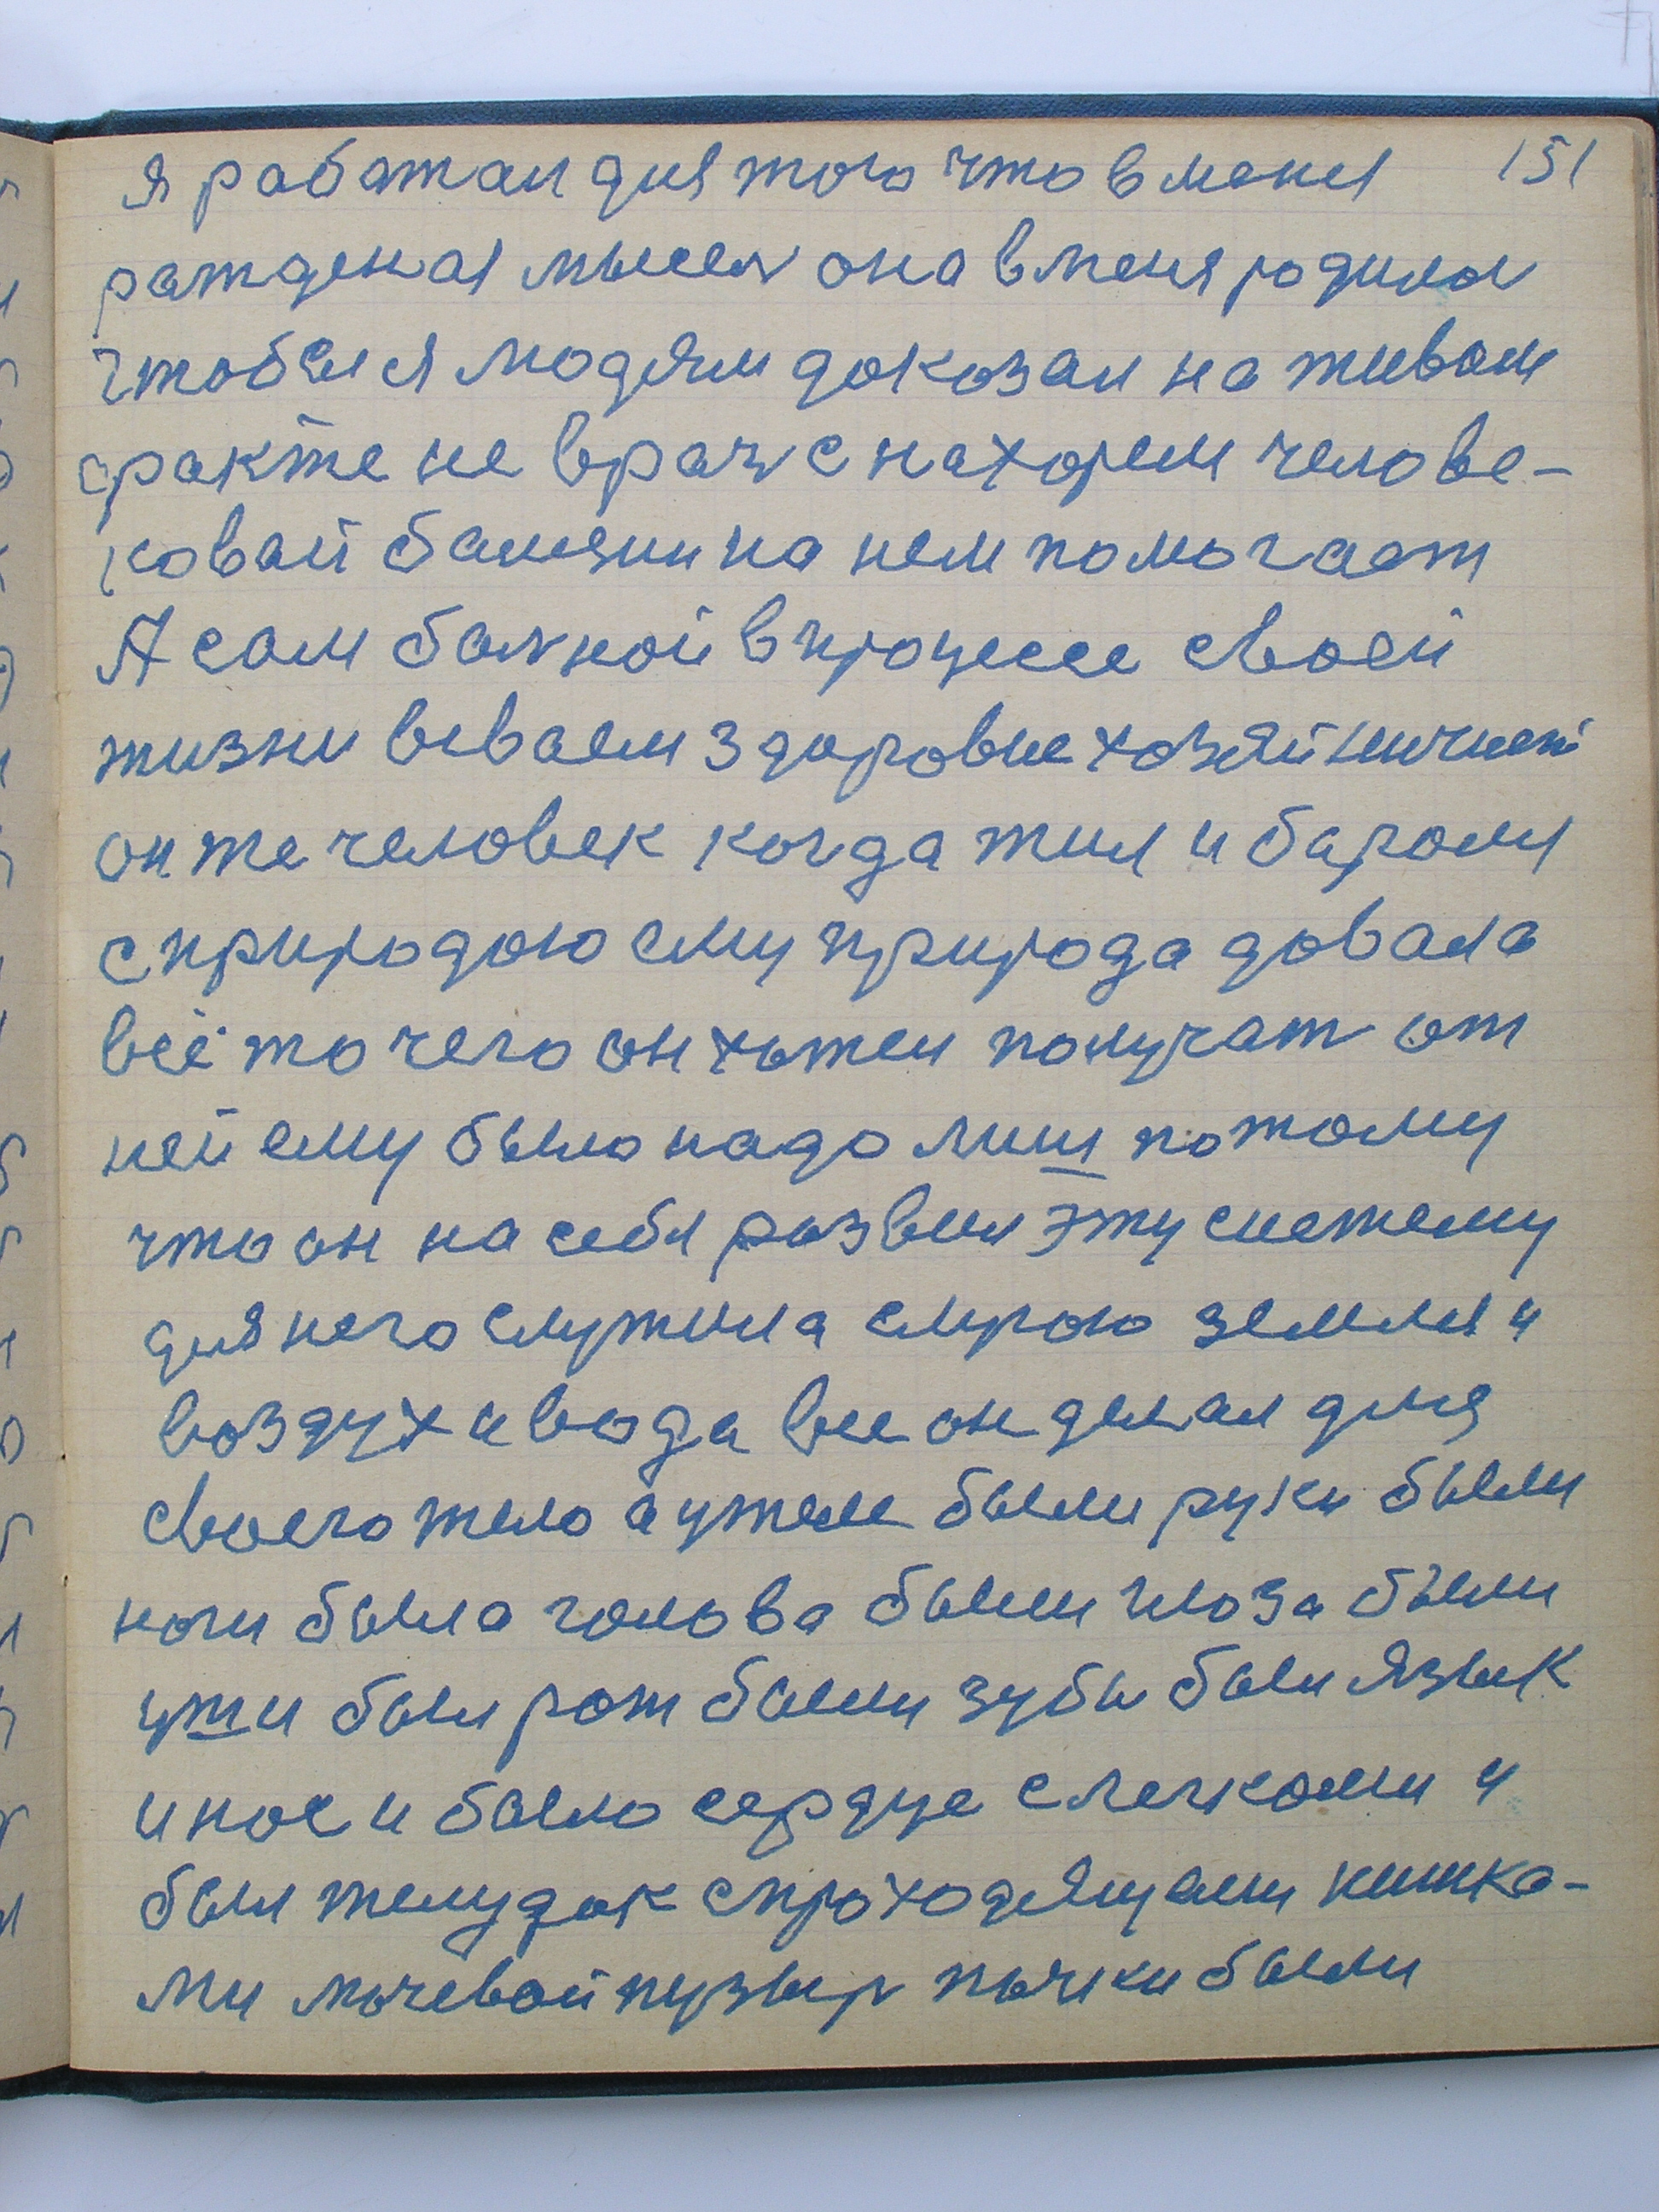 я работал для того что в меня 151
ражденая мысель она в меня родилсь
чтобы я людям доказал на живом
факте не врач снахорем челове-
ковай балезни на нем помогает
А сам балной в процессе своей
жизни всваем здоровие хозяйничает
он же человек когда жил и баролся
с природою ему природа довала
всё то чего он хотел получат от
ней ему было надо лиш потому
что он на себя развил эту систему
для него служила сырою земля и
воздух и вода все он делал для
своего тело а у теле были руки были
ноги была голова были глоза были
уши был рот были зубы был язык
и нос и было сердце с легкоми и
был желудок с проходящами кишка-
ми мочевой пузыр почки были